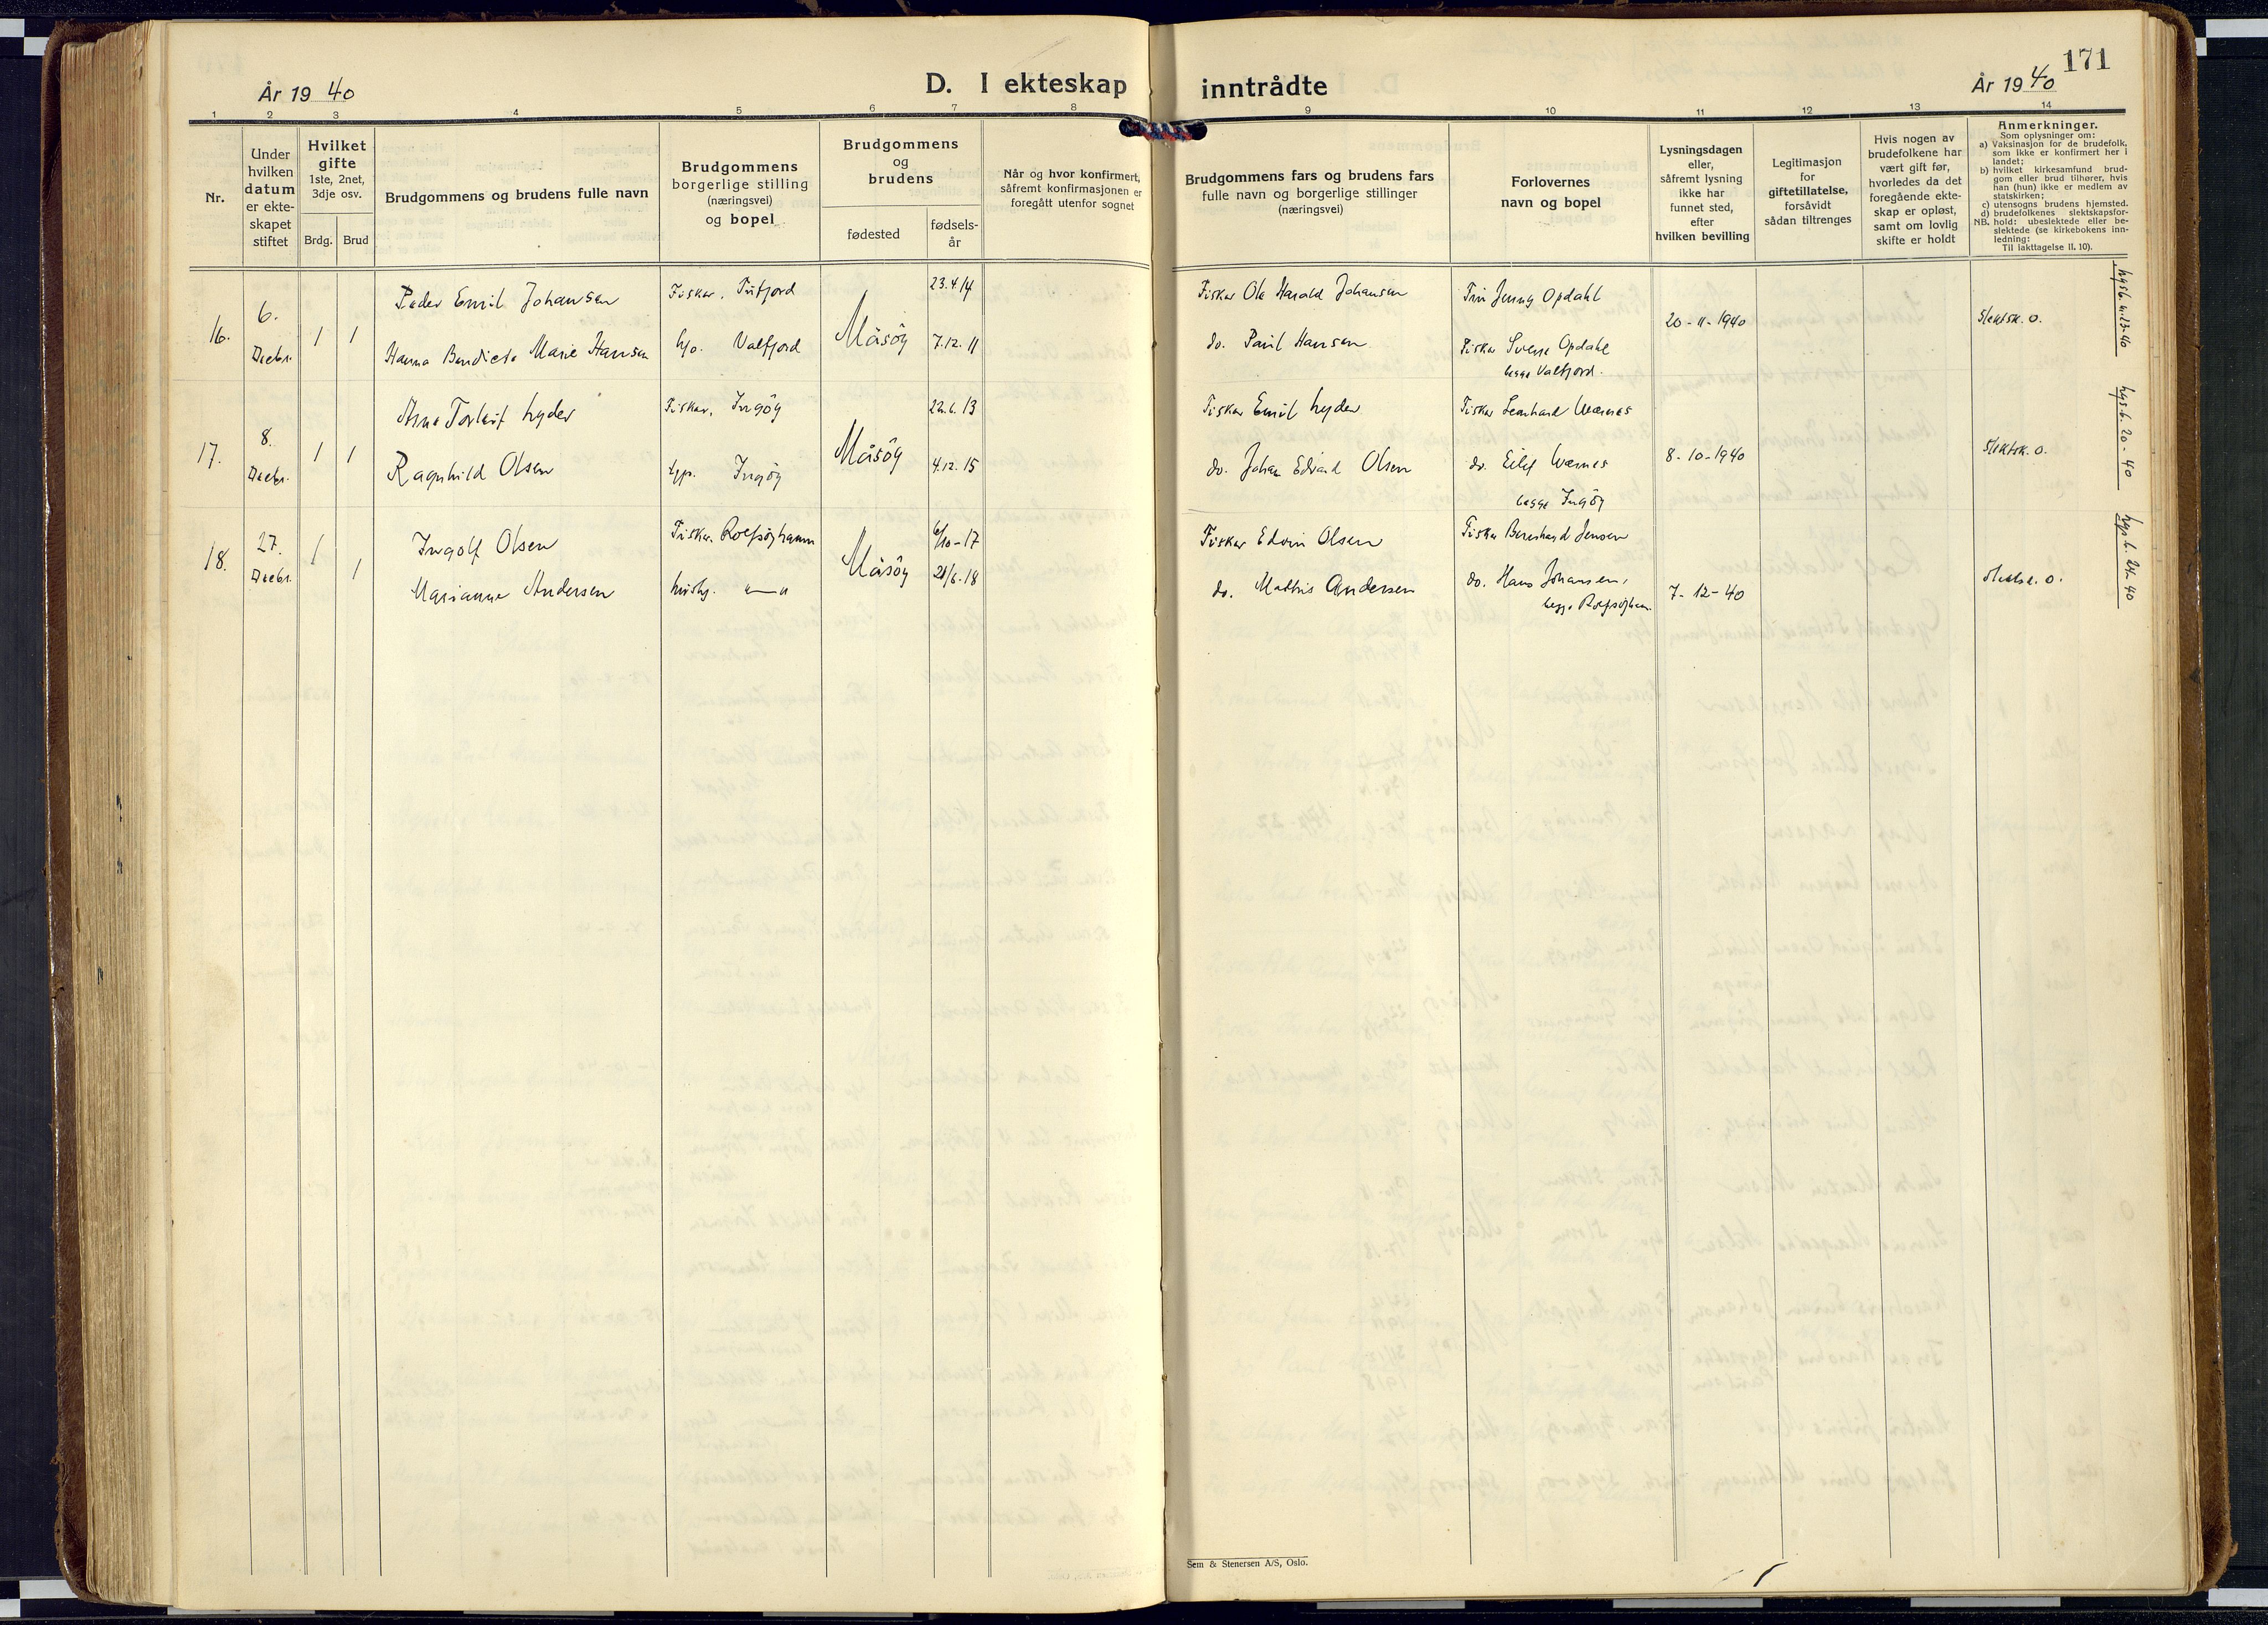 171
År 19 40
D. I ekteskap inntrådte
År 19 40
1 2 3 4 5 6 7 8 9 10 11 12 13 14
Nr.
Under
hvilken
datum
er ekte-
skapet
stiftet
Hvilket
gifte
1ste, 2net,
3dje osv.
Brdg. Brud
Brudgommens og brudens fulle navn
Brudgommens
borgerlige stilling
(næringsvei)
og bopel
Brudgommens
og
brudens
fødested
fødsels-
år
Når og hvor konfirmert,
såfremt konfirmasjonen er
foregått utenfor sognet
Brudgommens fars og brudens fars
fulle navn og borgerlige stillinger
(næringsvei)
Forlovernes
navn og bopel
Lysningsdagen
eller,
såfremt lysning
ikke har
funnet sted,
efter
hvilken bevilling
Legitimasjon
for
giftetillatelse,
forsåvidt
sådan tiltrenges
Hvis nogen av
brudefolkene har
vært gift før,
hvorledes da det
foregående ekte-
skap er opløst,
samt om lovlig
skifte er holdt
Anmerkninger.
Som oplysninger om:
a) Vaksinasjon for de brudefolk,
som ikke er konfirmert her i
landet;
b) hvilket kirkesamfund brud-
gom eller brud tilhører, hvis
han (hun) ikke er medlem av
statskirken;
c) utensogns brudens hjemsted.
d) brudefolkenes slektskapsfor-
hold: ubeslektede eller be-
slektede (se kirkebokens inn-
ledning:
NB.
Til iakttagelse II, 10).
16.
6.
Decbr.
1 1
Peder Emil Johansen
Hanna Bendicte Marie Hansen
Fisker, Tufjord
Valfjord
Måsöy
23.4.14
7.12.11
Fisker Ole Harald Johansen
do. Paul Hansen
Jenny Opdahl
Fisker Sverre Opdahl
begge Valfjord.
20-11-1940
Slektsk. o.
17.
8.
Decbr.
1 1
Arne Torleif Lyder
Ragnhild Olsen
Fisker, Ingöy
Ingöy
Måsöy
22.6.13
4.12.15
Fisker Emil Lyder
do. Johan Edvard Olsen
Fisker Leonhard Wærnes
do. Eilif Wærnes
begge Ingöy
8-10-1940
Slektsk. o.
18.
27.
Decbr.
1 1
Ingolf Olsen
Marianne Andersen
Fisker. Rolfsöyhamn
husby. "—"
Måsöy
6/10-17
21/6-18
Fisker Edvin Olsen
do. Mathis Andersen
Fisker Bernhard Jensen
do. Hans Johansen,
begge Rolfsöyhamn
7-12-40
Slektsk. o.
Sem & Stenersen A/S, Oslo.